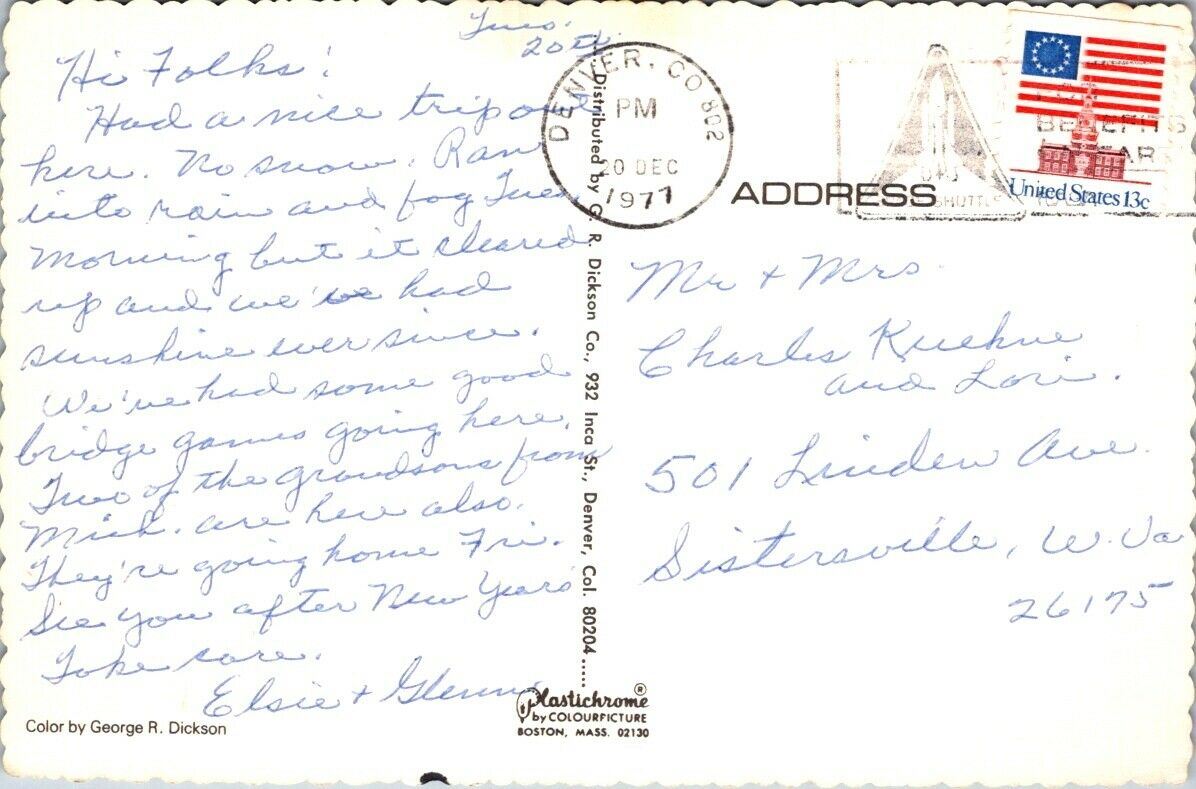 Tues.
20th
Hi Folks!
Had a nice trip out
here. No snow. Ran
into rain and fog Tues.
morning but it cleared
up and we've had
sunshine ever since.
We've had some good
bridge games going here.
Two of the grandsons from
Mich. are here also.
They're going home Fri.
See you after New Years
Take care.
Elsie + Glenn
Color by George R. Dickson
Distributed by G. R. Dickson Co., 932 Inca St., Denver, Col. 80204....
Plastichrome®
by COLOURPICTURE
BOSTON, MASS. 02130
DENVER, CO 802
PM
20 DEC
1977
SHUTTLE
BENEFITS
United States 13c
ADDRESS
Mr + Mrs.
Charles Kuehne
and Lori.
501 Linden Ave.
Sistersville, W. Va
26175